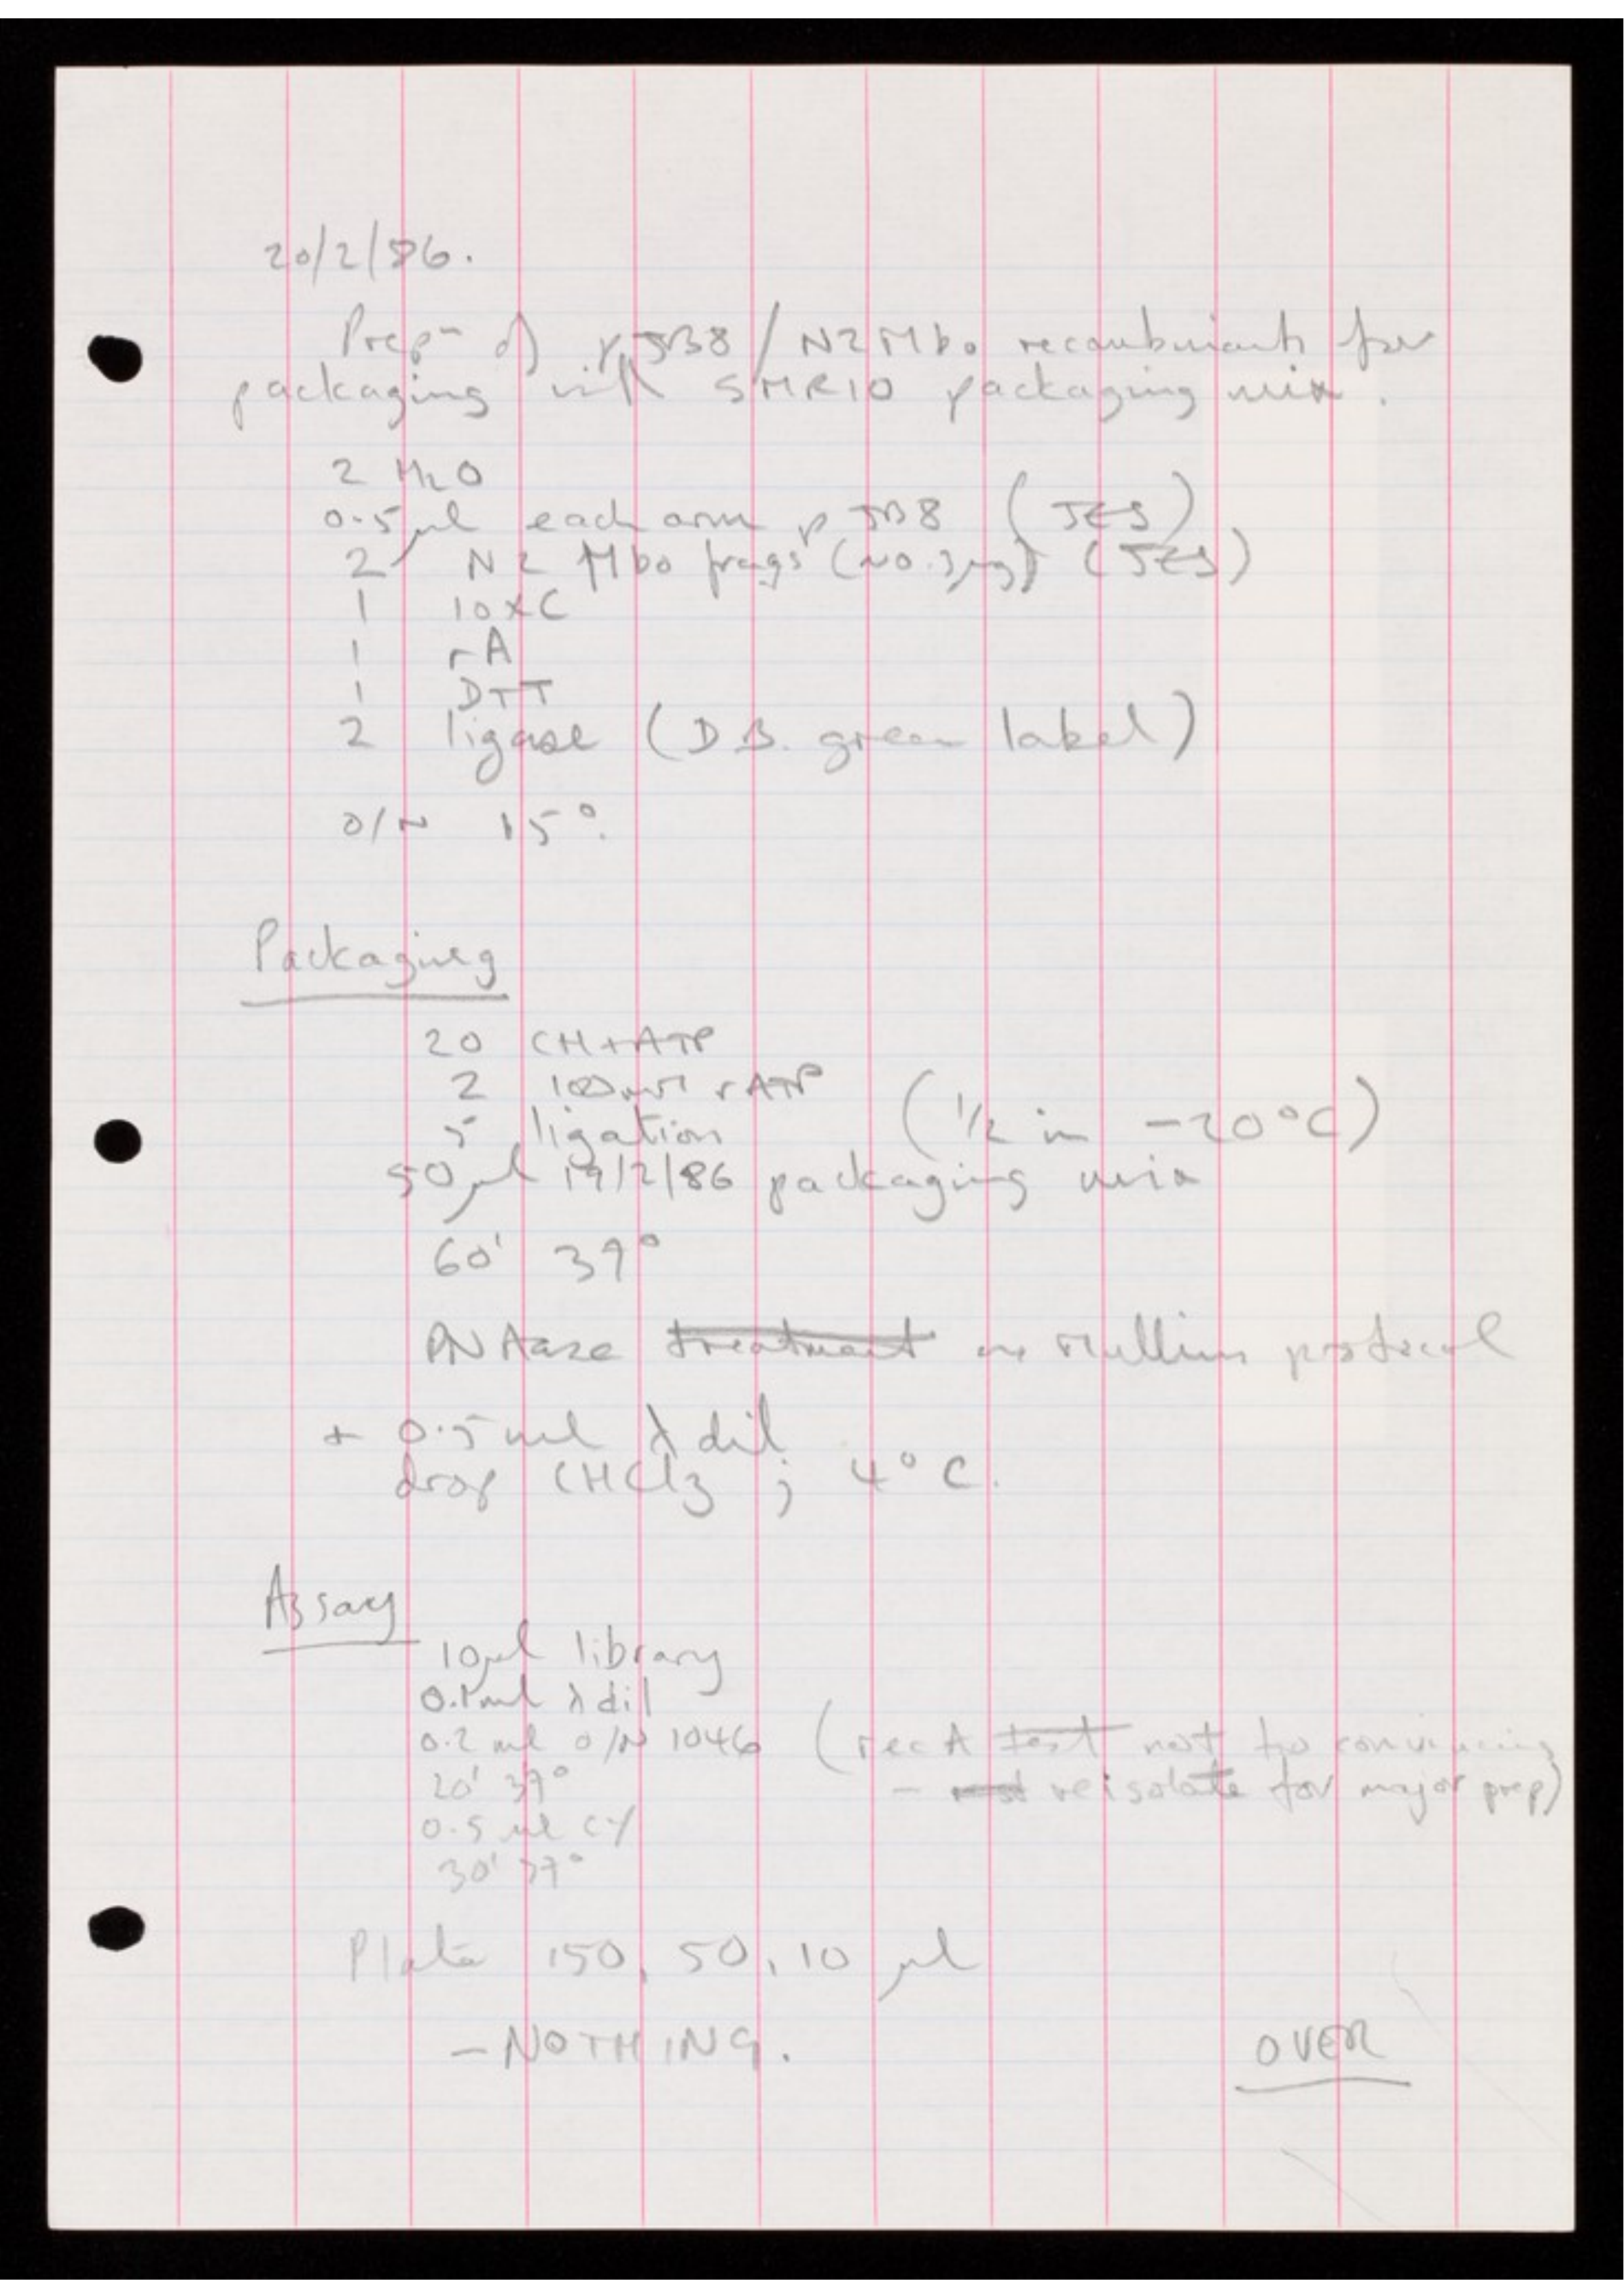 20/2/86.
Prep⁻ of pJB8 / N2 Mbo recombinants for
packaging with SMR10 packaging mix.
2 H₂O
0.5 μl each arm pJB8 (JES)
2 N2 Mbo frags (~0.3μg) (JES)
1 10xC
1 rA
1 DTT
2 ligase (D.B. green label)
O/N 15°.
Packaging
20 CH+ATP
2 100mM rATP
5 ligation (1/2 in -20°C)
50 μl 19/2/86 packaging mix
60' 37°
DNAase treatment as Mullins protocol
+ 0.5 ml λ dil
drop CHCl3 ; 4°C.
Assay
10μl library
0.1ml λ dil
0.2 ml O/N 1046 (rec A test not too convincing
20' 37° - reisolate for major prep)
0.5 ml CY
30' 37°
Plate 150, 50, 10 μl
- NOTHING.
OVER